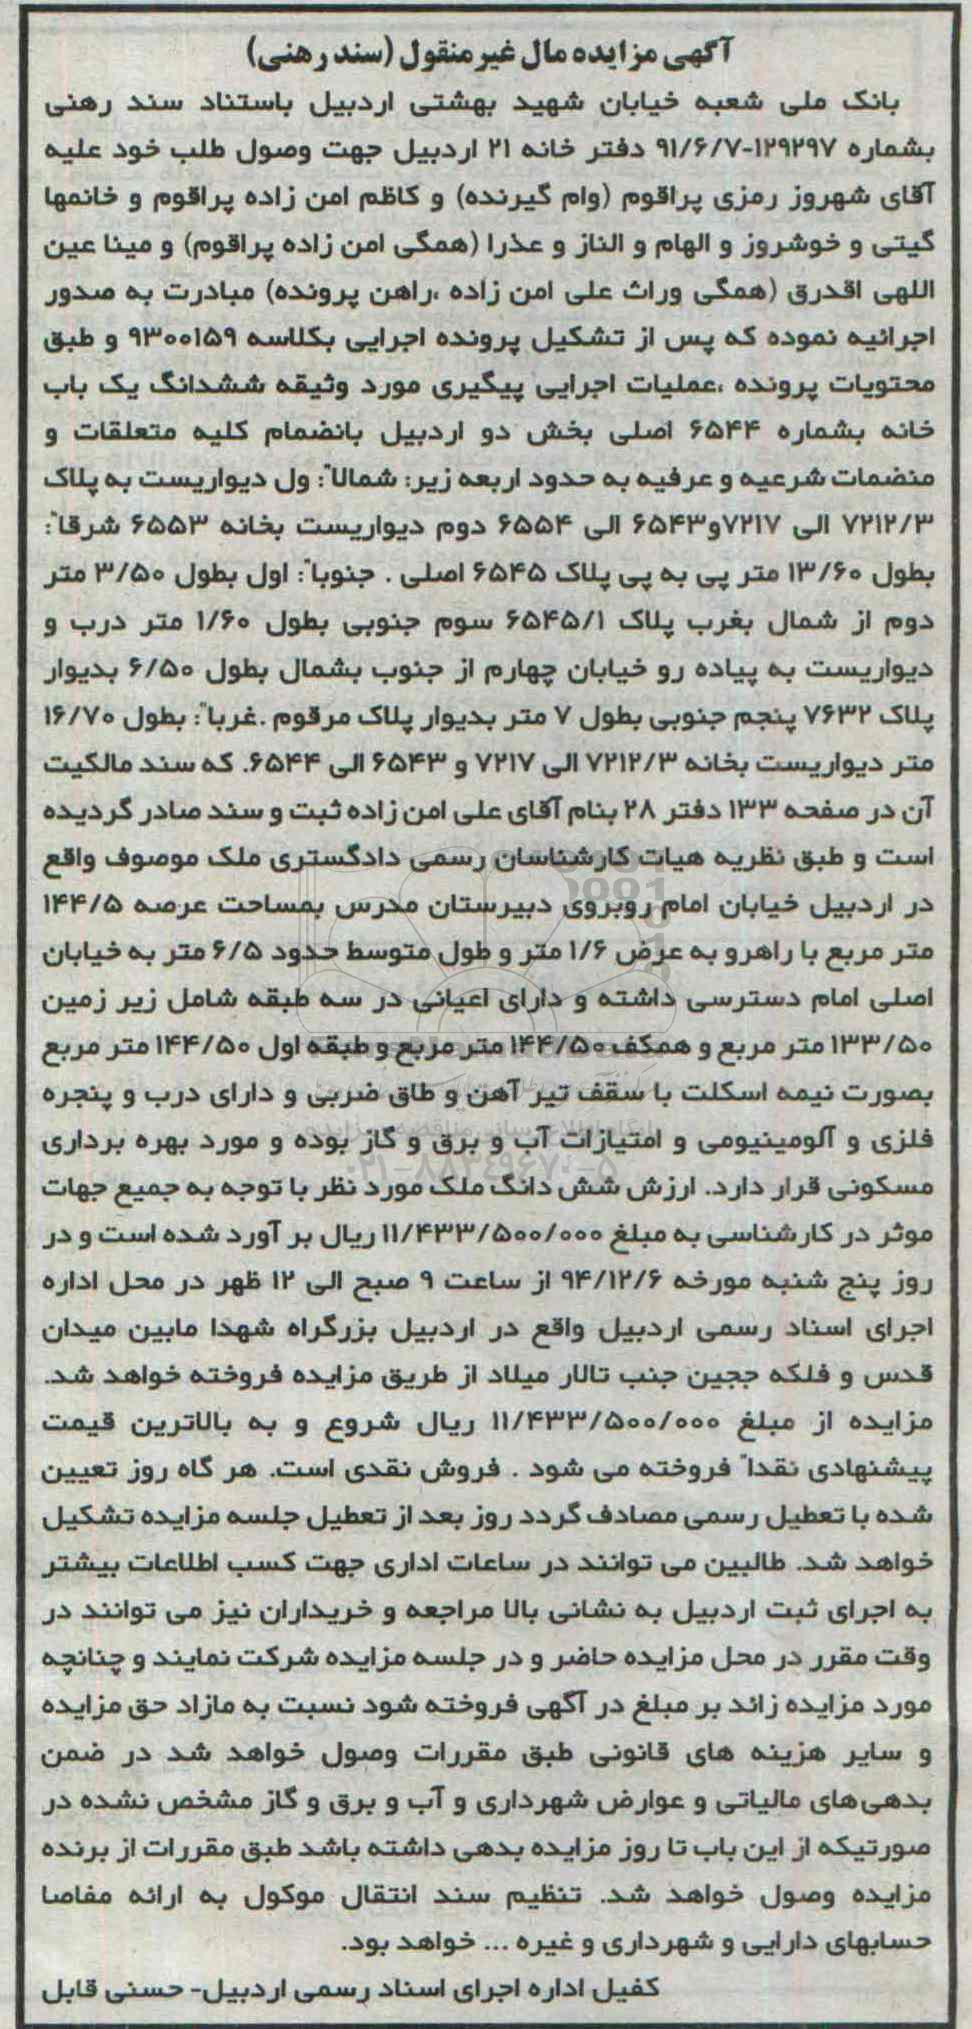 آگهی مزایده مال غیر منقول (سند رهنی)
بانک ملی شعبه خیابان شهید بهشتی اردبیل باستناد سند رهنی
بشماره ۱۲۹۲۹۷-۹۱/۶/۷ دفتر خانه ۲۱ اردبیل جهت وصول طلب خود علیه
آقای شهروز رمزی پراقوم (وام گیرنده) و کاظم امن زاده پراقوم و خانمها
گیتی و خوشروز و الهام و الناز و عذرا (همگی امن زاده پراقوم) و مینا عین
اللهی اقدرق (همگی وراث علی امن زاده ،راهن پرونده) مبادرت به صدور
اجرائیه نموده که پس از تشکیل پرونده اجرایی بکلاسه ۹۳۰۰۱۵۹ و طبق
محتویات پرونده ،عملیات اجرایی پیگیری مورد وثیقه ششدانگ یک باب
خانه بشماره ۶۵۴۴ اصلی بخش دو اردبیل بانضمام کلیه متعلقات و
منضمات شرعیه و عرفیه به حدود اربعه زیر: شمالاً: ول دیواریست به پلاک
۷۲۱۲/۳ الی ۷۲۱۷و۶۵۴۳ الی ۶۵۵۴ دوم دیواریست بخانه ۶۵۵۳ شرقاً:
بطول ۱۳/۶۰ متر پی به پی پلاک ۶۵۴۵ اصلی . جنوباً: اول بطول ۳/۵۰ متر
دوم از شمال بغرب پلاک ۶۵۴۵/۱ سوم جنوبی بطول ۱/۶۰ متر درب و
دیواریست به پیاده رو خیابان چهارم از جنوب بشمال بطول ۶/۵۰ بدیوار
پلاک ۷۶۳۲ پنجم جنوبی بطول ۷ متر بدیوار پلاک مرقوم .غرباً: بطول ۱۶/۷۰
متر دیواریست بخانه ۷۲۱۲/۳ الی ۷۲۱۷ و ۶۵۴۳ الی ۶۵۴۴. که سند مالکیت
آن در صفحه ۱۳۳ دفتر ۲۸ بنام آقای علی امن زاده ثبت و سند صادر گردیده
است و طبق نظریه هیات کارشناسان رسمی دادگستری ملک موصوف واقع
در اردبیل خیابان امام روبروی دبیرستان مدرس بمساحت عرصه ۱۴۴/۵
متر مربع با راهرو به عرض ۱/۶ متر و طول متوسط حدود ۶/۵ متر به خیابان
اصلی امام دسترسی داشته و دارای اعیانی در سه طبقه شامل زیر زمین
۱۳۳/۵۰ متر مربع و همکف ۱۴۴/۵۰ متر مربع و طبقه اول ۱۴۴/۵۰ متر مربع
بصورت نیمه اسکلت با سقف تیر آهن و طاق ضربی و دارای درب و پنجره
فلزی و آلومینیومی و امتیازات آب و برق و گاز بوده و مورد بهره برداری
مسکونی قرار دارد. ارزش شش دانگ ملک مورد نظر با توجه به جمیع جهات
موثر در کارشناسی به مبلغ ۱۱/۴۳۳/۵۰۰/۰۰۰ ریال بر آورد شده است و در
روز پنج شنبه مورخه ۹۴/۱۲/۶ از ساعت ۹ صبح الی ۱۲ ظهر در محل اداره
اجرای اسناد رسمی اردبیل واقع در اردبیل بزرگراه شهدا مابین میدان
قدس و فلکه ججین جنب تالار میلاد از طریق مزایده فروخته خواهد شد.
مزایده از مبلغ ۱۱/۴۳۳/۵۰۰/۰۰۰ ریال شروع و به بالاترین قیمت
پیشنهادی نقداً فروخته می شود . فروش نقدی است. هر گاه روز تعیین
شده با تعطیل رسمی مصادف گردد روز بعد از تعطیل جلسه مزایده تشکیل
خواهد شد. طالبین می توانند در ساعات اداری جهت کسب اطلاعات بیشتر
به اجرای ثبت اردبیل به نشانی بالا مراجعه و خریداران نیز می توانند در
وقت مقرر در محل مزایده حاضر و در جلسه مزایده شرکت نمایند و چنانچه
مورد مزایده زائد بر مبلغ در آگهی فروخته شود نسبت به مازاد حق مزایده
و سایر هزینه های قانونی طبق مقررات وصول خواهد شد در ضمن
بدهی‌های مالیاتی و عوارض شهرداری و آب و برق و گاز مشخص نشده در
صورتیکه از این باب تا روز مزایده بدهی داشته باشد طبق مقررات از برنده
مزایده وصول خواهد شد. تنظیم سند انتقال موکول به ارائه مفاصا
حسابهای دارایی و شهرداری و غیره ... خواهد بود.
کفیل اداره اجرای اسناد رسمی اردبیل- حسنی قابل